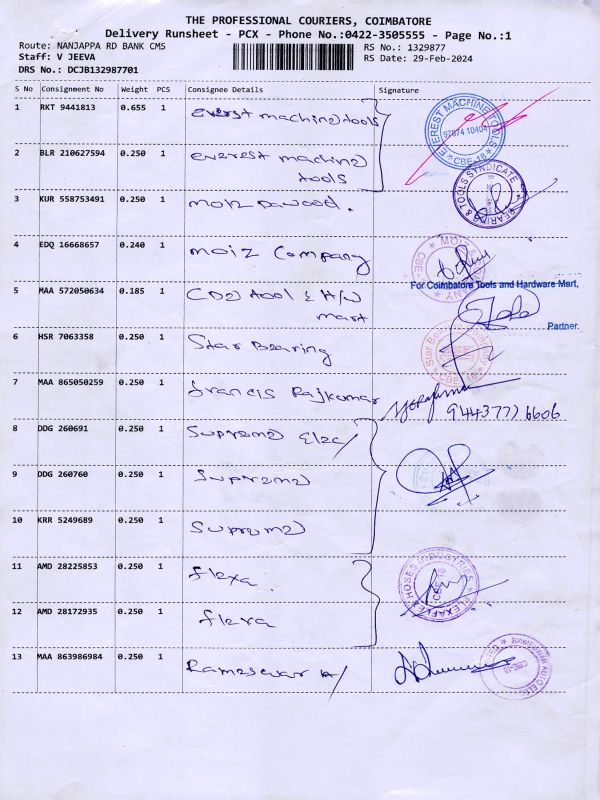 THE PROFESSIONAL COURIERS, COIMBATORE
Delivery Runsheet - PCX - Phone No.:0422-3505555 - Page No.:1
Route: NANJAPPA RD BANK CMS
RS No.: 1329877
Staff: V JEEVA
RS Date: 29-Feb-2024
DRS No.: DCJB132987701
S No Consignment No Weight PCS Consignee Details Signature
1 RKT 9441813 0.655 1 everst machine tools
EVEREST MACHINE TOOLS
97874 10404
CBE-18
2 BLR 210627594 0.250 1 everest machine
tools
BEARING & TOOLS SYNDICATE
3 KUR 558753491 0.250 1 moiz Dawood.
4 EDQ 16668657 0.240 1 moiz Company
MOIZ
CBE
5 MAA 572050634 0.185 1 CDE tool & H/W
mart
For Coimbatore Tools and Hardware Mart,
Partner.
6 HSR 7063358 0.250 1 Star Bearing
Star Bearing Company
CBE
7 MAA 865050259 0.250 1 francis Rajkumar
9443777 6606
8 DDG 260691 0.250 1 Supreme Elec/
9 DDG 260760 0.250 1 Supreme
10 KRR 5249689 0.250 1 Supreme
11 AMD 28225853 0.250 1 flexa.
FLEXAFLEX HOSES INDUSTRIES
CBE-18
12 AMD 28172935 0.250 1 flexa
13 MAA 863986984 0.250 1 Rameswar A/
RAMESWAR AUTO ELEC
CBE-18